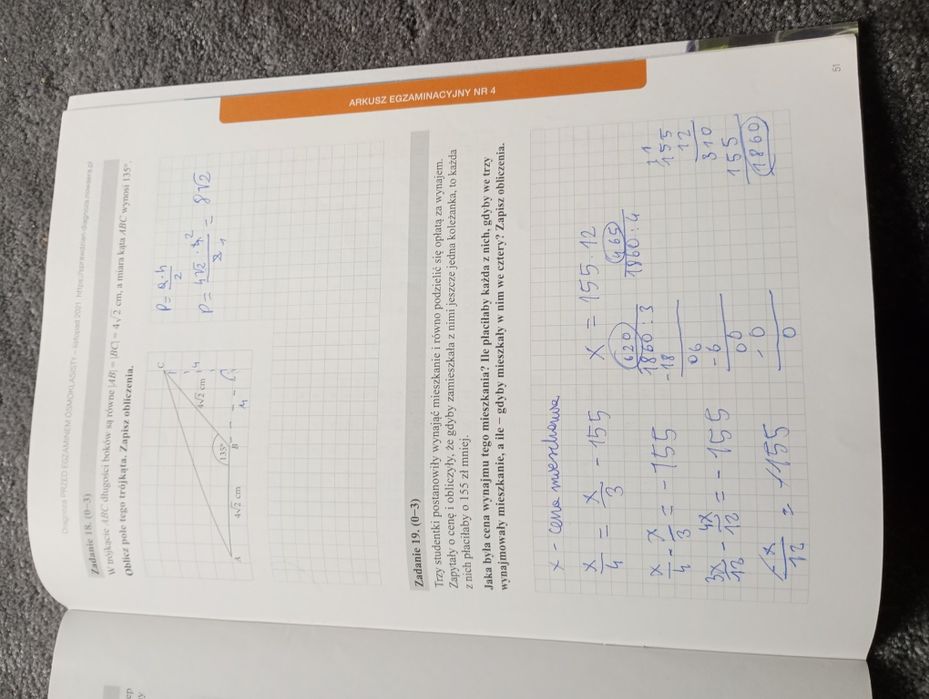 Diagnoza PRZED EGZAMINEM ÓSMOKLASISTY – listopad 2021
Zadanie 18. (0–3)
W trójkącie ABC długości boków są równe |AB| = |BC| = 4√2 cm, a miara kąta ABC wynosi 135°.
Oblicz pole tego trójkąta. Zapisz obliczenia.
A
B
C
4√2 cm
4√2 cm
135°
P = a·h/2
= 8√2
ARKUSZ EGZAMINACYJNY NR 4
Zadanie 19. (0–3)
Trzy studentki postanowiły wynająć mieszkanie i równo podzielić się opłatą za wynajem.
Zapytały o cenę i obliczyły, że gdyby zamieszkała z nimi jeszcze jedna koleżanka, to każda
z nich płaciłaby o 155 zł mniej.
Jaka była cena wynajmu tego mieszkania? Ile płaciłaby każda z nich, gdyby we trzy
wynajmowały mieszkanie, a ile – gdyby mieszkały w nim we cztery? Zapisz obliczenia.
x - cena mieszkania
x/4 = x/3 - 155
x/4 - x/3 = - 155
3x/12 - 4x/12 = - 155
x = 155 · 12
620
1860 : 3
-18
06
-6
06
- 0
0
465
1860 : 4
155
12
310
155
1860
51